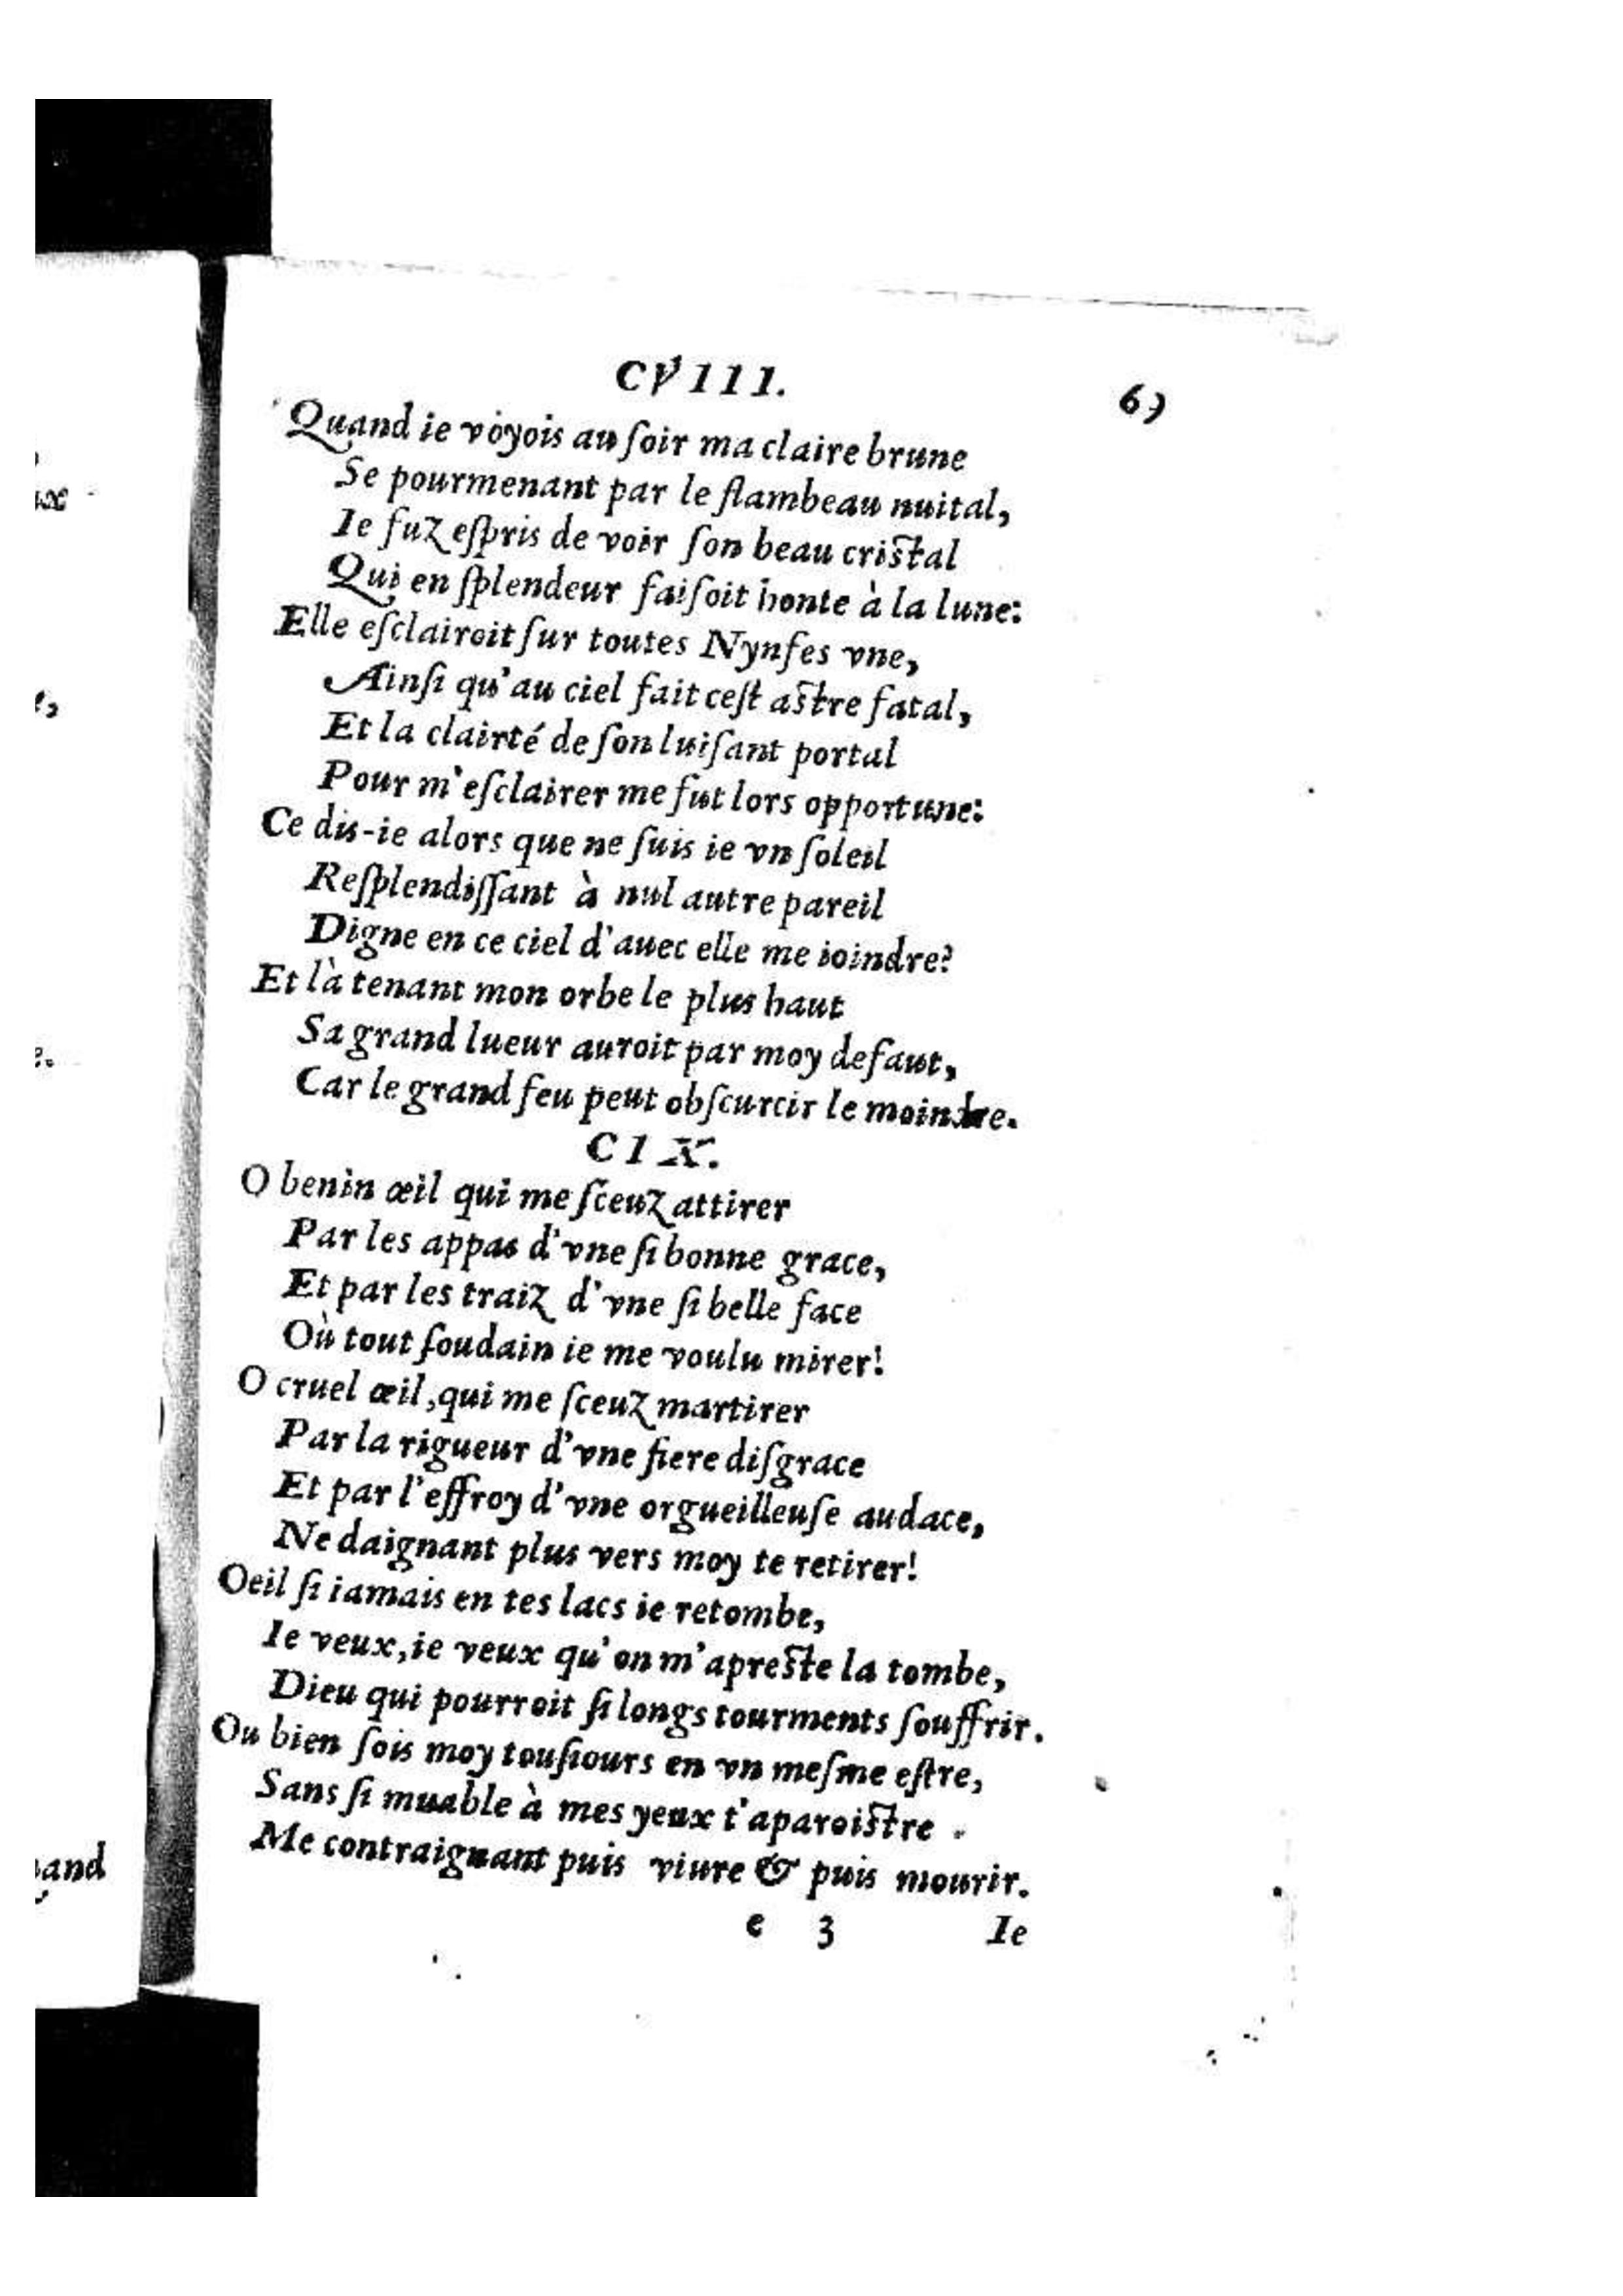 CVIII.
Quand ie voyois au ſoir ma claire brune
Se pourmenant par le flambeau nuital,
Ie fuz eſpris de voir ſon beau criſtal
Qui en ſplendeur faiſoit honte à la lune:
Elle eſclairoit ſur toutes Nynfes vne,
Ainſi qu'au ciel fait ceſt aſtre fatal,
Et la clairté de ſon luiſant portal
Pour m'eſclairer me fut lors opportune:
Ce dis-ie alors que ne ſuis ie vn ſoleil
Reſplendiſſant à nul autre pareil
Digne en ce ciel d'auec elle me ioindre?
Et là tenant mon orbe le plus haut
Sa grand lueur auroit par moy defaut,
Car le grand feu peut obſcurcir le moindre.
CIX.
O benin œil qui me ſceuz attirer
Par les appas d'vne ſi bonne grace,
Et par les traiz d'vne ſi belle face
Où tout ſoudain ie me voulu mirer!
O cruel œil, qui me ſceuz martirer
Par la rigueur d'vne fiere diſgrace
Et par l'effroy d'vne orgueilleuſe audace,
Ne daignant plus vers moy te retirer!
Oeil ſi iamais en tes lacs ie retombe,
Ie veux, ie veux qu'on m'apreſte la tombe,
Dieu qui pourroit ſi longs tourments ſouffrir.
Ou bien ſois moy touſiours en vn meſme eſtre,
Sans ſi muable à mes yeux t'aparoiſtre
Me contraignant puis viure & puis mourir.
e 3 Ie